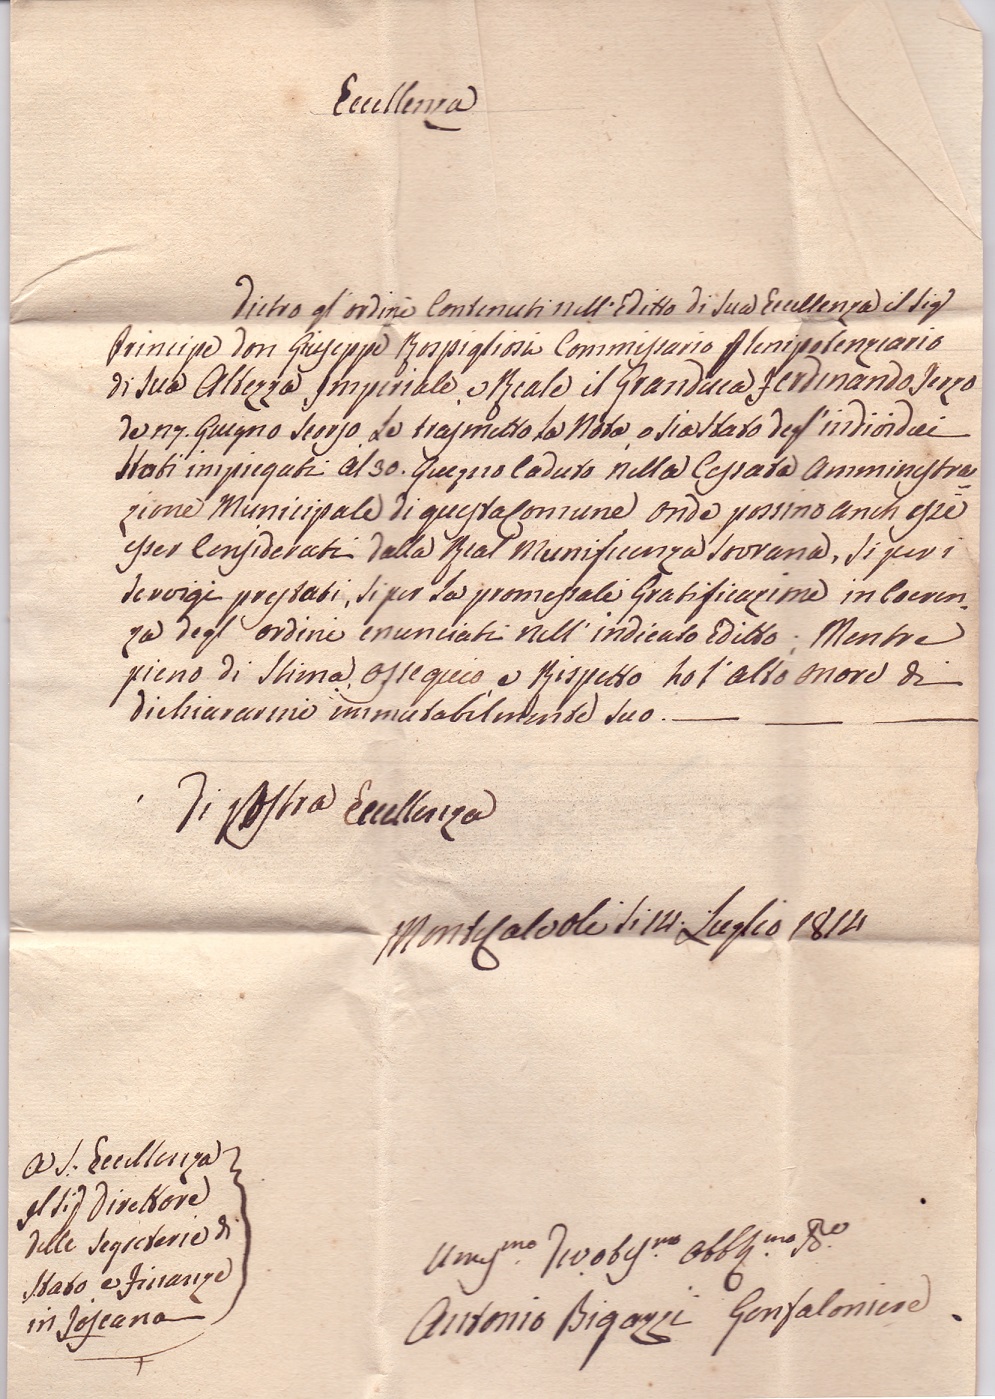 Eccellenza
Dietro gl'ordini Contenuti nell'Editto di Sua Eccellenza il Sig.
Principe Don Giuseppe Rospigliosi Commissario Plenipotenziario
di Sua Altezza Imperiale e Reale il Granduca Ferdinando Terzo
de 27. Giugno Scorso Le trasmetto la Nota, o sia Stato degl'individui
Stati impiegati al 30. Giugno Caduto nella Cessata Amministra=
zione Municipale di questa Comune onde possino anch'essi
esser Considerati dalla Real Munificenza Sovrana, si per i
Servigi prestati, si per la promessali Gratificazione in Coeren=
za degl'ordini enunciati nell'indicato Editto; Mentre
pieno di Stima, Ossequio, e Rispetto ho l'alto onore di
dichiararmi immutabilmente suo.
Di Vostra Eccellenza
Montecalvoli li 14. Luglio 1814
A S. Eccellenza
Il Sig. Direttore
delle Segreterie di
Stato e Finanze
in Toscana
Um.mo Dev. Obb.mo
Antonio Bigazzi Gonfaloniere